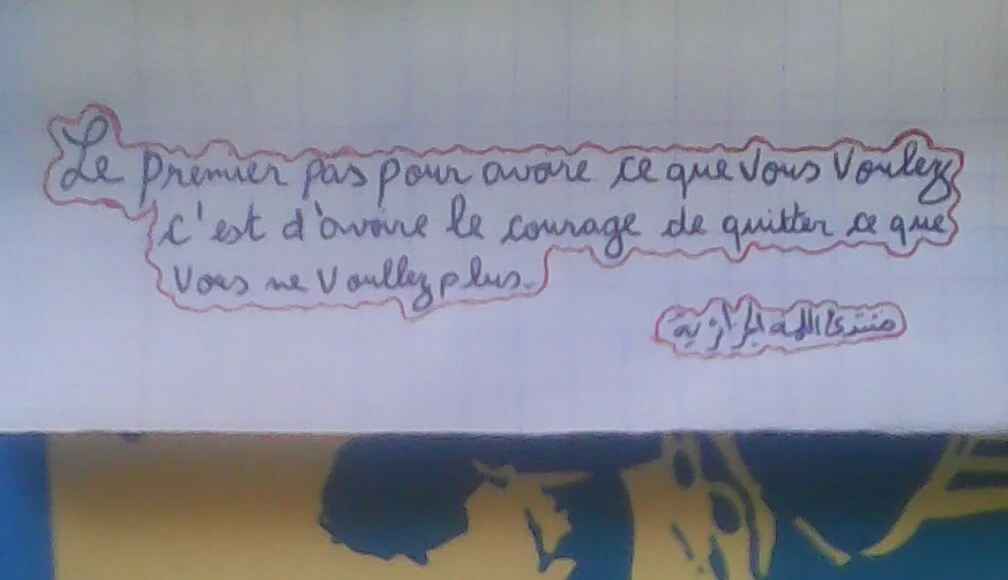 Le premier pas pour avoire ce que vous voulez
c'est d'avoire le courage de quitter ce que
vous ne voullez plus.
منتدى اللمة الجزائرية